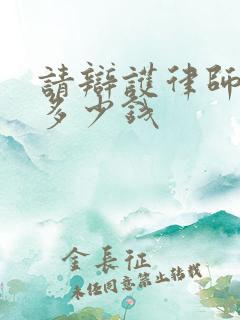 請辯護律師
多少錢
金長征
未任同意禁止转载